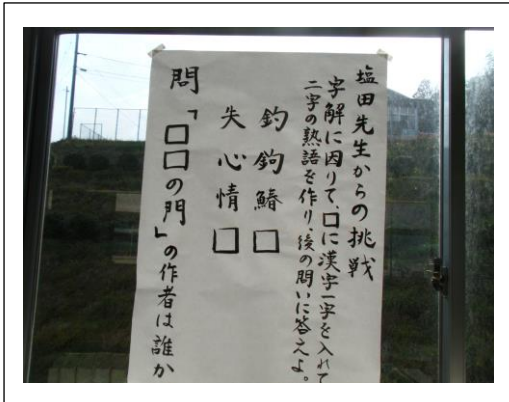 塩田先生からの挑戦
字解に因りて、□に漢字一字を入れて
二字の熟語を作り、後の問いに答えよ。
釣鉤鰆□
失心情□
問「□□の門」の作者は誰か